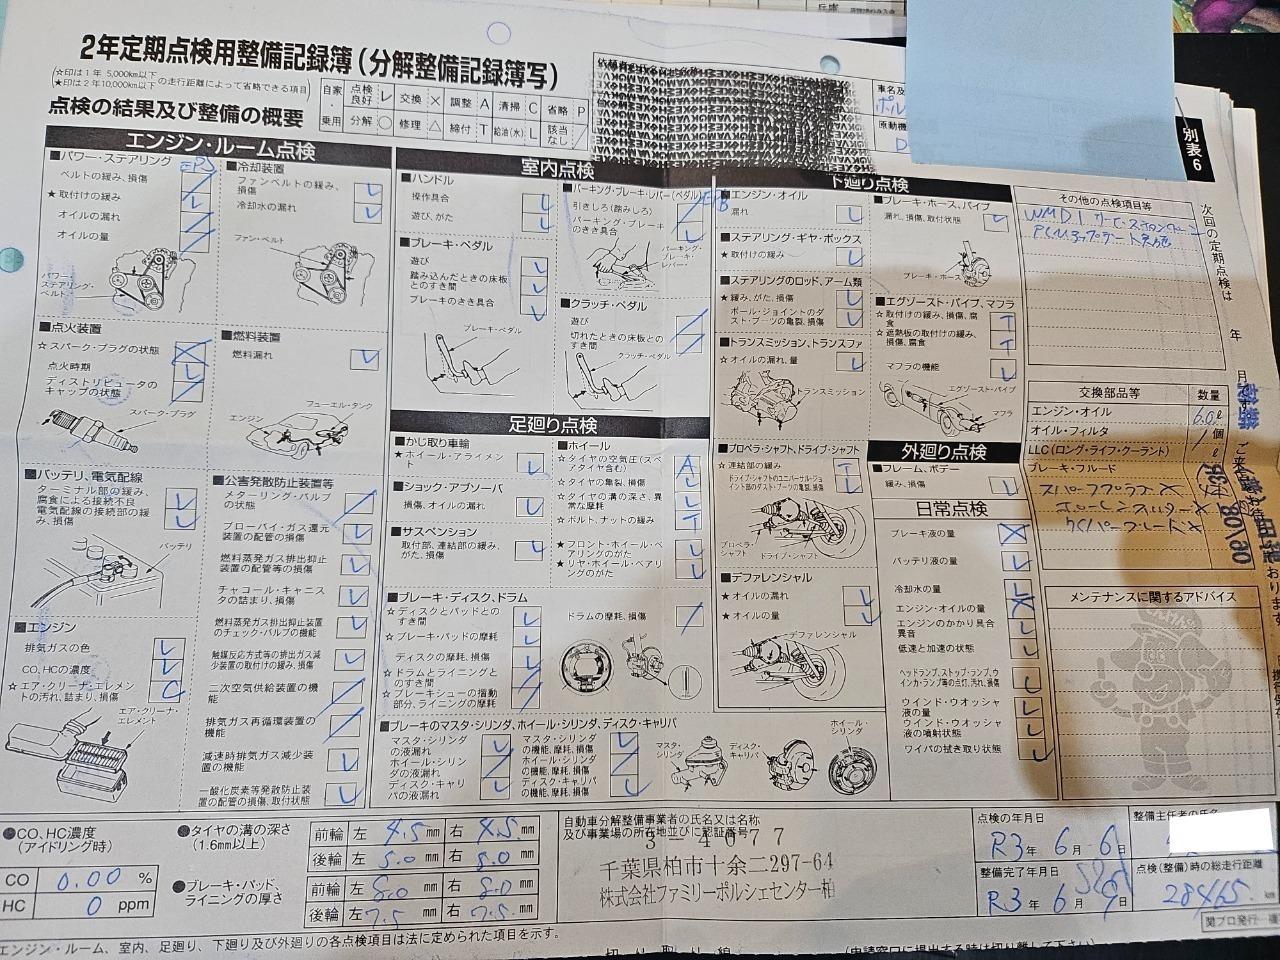 兵庫
2年定期点検用整備記録簿(分解整備記録簿写)
(☆印は1年 5,000km以下
★印は2年10,000km以下の走行距離によって省略できる項目)
点検の結果及び整備の概要
自家・乗用
点検良好 レ 交換 × 調整 A 清掃 C 省略 P
分解 ○ 修理 △ 締付 T 給油(水) L 該当なし /
車名及
ポル
原動機
D
別表6
エンジン・ルーム点検
■パワー・ステアリング
EPS
ベルトの緩み、損傷
★取付けの緩み
オイルの漏れ
オイルの量
パワー・ステアリング・ベルト
■冷却装置
ファンベルトの緩み、損傷
冷却水の漏れ
ファン・ベルト
■点火装置
☆スパーク・プラグの状態
点火時期
ディストリビュータのキャップの状態
スパーク・プラグ
■燃料装置
燃料漏れ
フューエル・タンク
エンジン
■バッテリ、電気配線
ターミナル部の緩み、腐食による接続不良
電気配線の接続部の緩み、損傷
バッテリ
■公害発散防止装置等
メターリング・バルブの状態
ブローバイ・ガス還元装置の配管の損傷
燃料蒸発ガス排出抑止装置の配管等の損傷
チャコール・キャニスタの詰まり、損傷
燃料蒸発ガス排出抑止装置のチェック・バルブの機能
触媒反応方式等の排出ガス減少装置の取付けの緩み、損傷
二次空気供給装置の機能
排気ガス再循環装置の機能
減速時排気ガス減少装置の機能
一酸化炭素等発散防止装置の配管の損傷、取付状態
■エンジン
排気ガスの色
CO、HCの濃度
☆エア・クリーナ・エレメントの汚れ、詰まり、損傷
エア・クリーナ・エレメント
室内点検
■ハンドル
操作具合
遊び、がた
■ブレーキ・ペダル
遊び
踏み込んだときの床板とのすき間
ブレーキのきき具合
ブレーキ・ペダル
■パーキング・ブレーキ・レバー(ペダル)
引きしろ(踏みしろ)
パーキング・ブレーキのきき具合
パーキング・ブレーキ・レバー
■クラッチ・ペダル
遊び
切れたときの床板とのすき間
クラッチ・ペダル
足廻り点検
■かじ取り車輪
★ホイール・アライメント
■ショック・アブソーバ
損傷、オイルの漏れ
■サスペンション
取付部、連結部の緩み、がた、損傷
■ホイール
☆タイヤの空気圧(スペアタイヤ含む)
☆タイヤの亀裂、損傷
☆タイヤの溝の深さ、異常な摩耗
☆ボルト、ナットの緩み
★フロント・ホイール・ベアリングのがた
★リヤ・ホイール・ベアリングのがた
■ブレーキ・ディスク、ドラム
☆ディスクとパッドとのすき間
☆ブレーキ・パッドの摩耗
ディスクの摩耗、損傷
☆ドラムとライニングとのすき間
☆ブレーキシューの摺動部分、ライニングの摩耗
ドラムの摩耗、損傷
■ブレーキのマスタ・シリンダ、ホイール・シリンダ、ディスク・キャリパ
マスタ・シリンダの液漏れ
ホイール・シリンダの液漏れ
ディスク・キャリパの液漏れ
マスタ・シリンダの機能、摩耗、損傷
ホイール・シリンダの機能、摩耗、損傷
ディスク・キャリパの機能、摩耗、損傷
マスタ・シリンダ
ディスク・キャリパ
ホイール・シリンダ
下廻り点検
■エンジン・オイル
漏れ
■ステアリング・ギヤ・ボックス
★取付けの緩み
■ステアリングのロッド、アーム類
★緩み、がた、損傷
ボール・ジョイントのダスト・ブーツの亀裂、損傷
■トランスミッション、トランスファ
☆オイルの漏れ、量
トランスミッション
■プロペラ・シャフト、ドライブ・シャフト
☆連結部の緩み
ドライブ・シャフトのユニバーサル・ジョイント部のダスト・ブーツの亀裂、損傷
プロペラ・シャフト
ドライブ・シャフト
■デファレンシャル
★オイルの漏れ
★オイルの量
デファレンシャル
■ブレーキ・ホース、パイプ
漏れ、損傷、取付状態
ブレーキ・ホース
■エグゾースト・パイプ、マフラ
☆取付けの緩み、損傷、腐食
☆遮熱板の取付けの緩み、損傷、腐食
マフラの機能
エグゾースト・パイプ
マフラ
外廻り点検
■フレーム、ボデー
緩み、損傷
日常点検
ブレーキ液の量
バッテリ液の量
冷却水の量
エンジン・オイルの量
エンジンのかかり具合異音
低速と加速の状態
ヘッドランプ、ストップ、ランプ、ウインカ・ランプ等の点灯、汚れ、損傷
ウインド・ウオッシャ液の量
ウインド・ウオッシャ液の噴射状態
ワイパの拭き取り状態
その他の点検項目等
交換部品等 数量
エンジン・オイル 6.0ℓ
オイル・フィルタ 1個
LLC(ロング・ライフ・クーラント) ℓ
ブレーキ・フルード
メンテナンスに関するアドバイス
次回の定期点検は 年 月です。
●CO、HC濃度(アイドリング時)
CO 0.00 %
HC 0 ppm
●タイヤの溝の深さ(1.6mm以上)
前輪 左 4.5 mm 右 4.5 mm
後輪 左 5.0 mm 右 5.0 mm
●ブレーキ・パッド、ライニングの厚さ
前輪 左 8.0 mm 右 8.0 mm
後輪 左 7.5 mm 右 7.5 mm
自動車分解整備事業者の氏名又は名称及び事業場の所在地並びに認証番号
3-4077
千葉県柏市十余二297-64
株式会社ファミリーポルシェセンター柏
点検の年月日
R3年 6月 6日
整備完了年月日
R3年 6月 9日
整備主任者の氏名
点検(整備)時の総走行距離
28465 km
関プロ発行
エンジン・ルーム、室内、足廻り、下廻り及び外廻りの各点検項目は法に定められた項目を示す。
切り取り線
(申請窓口に提出する時は切り離して下さい)